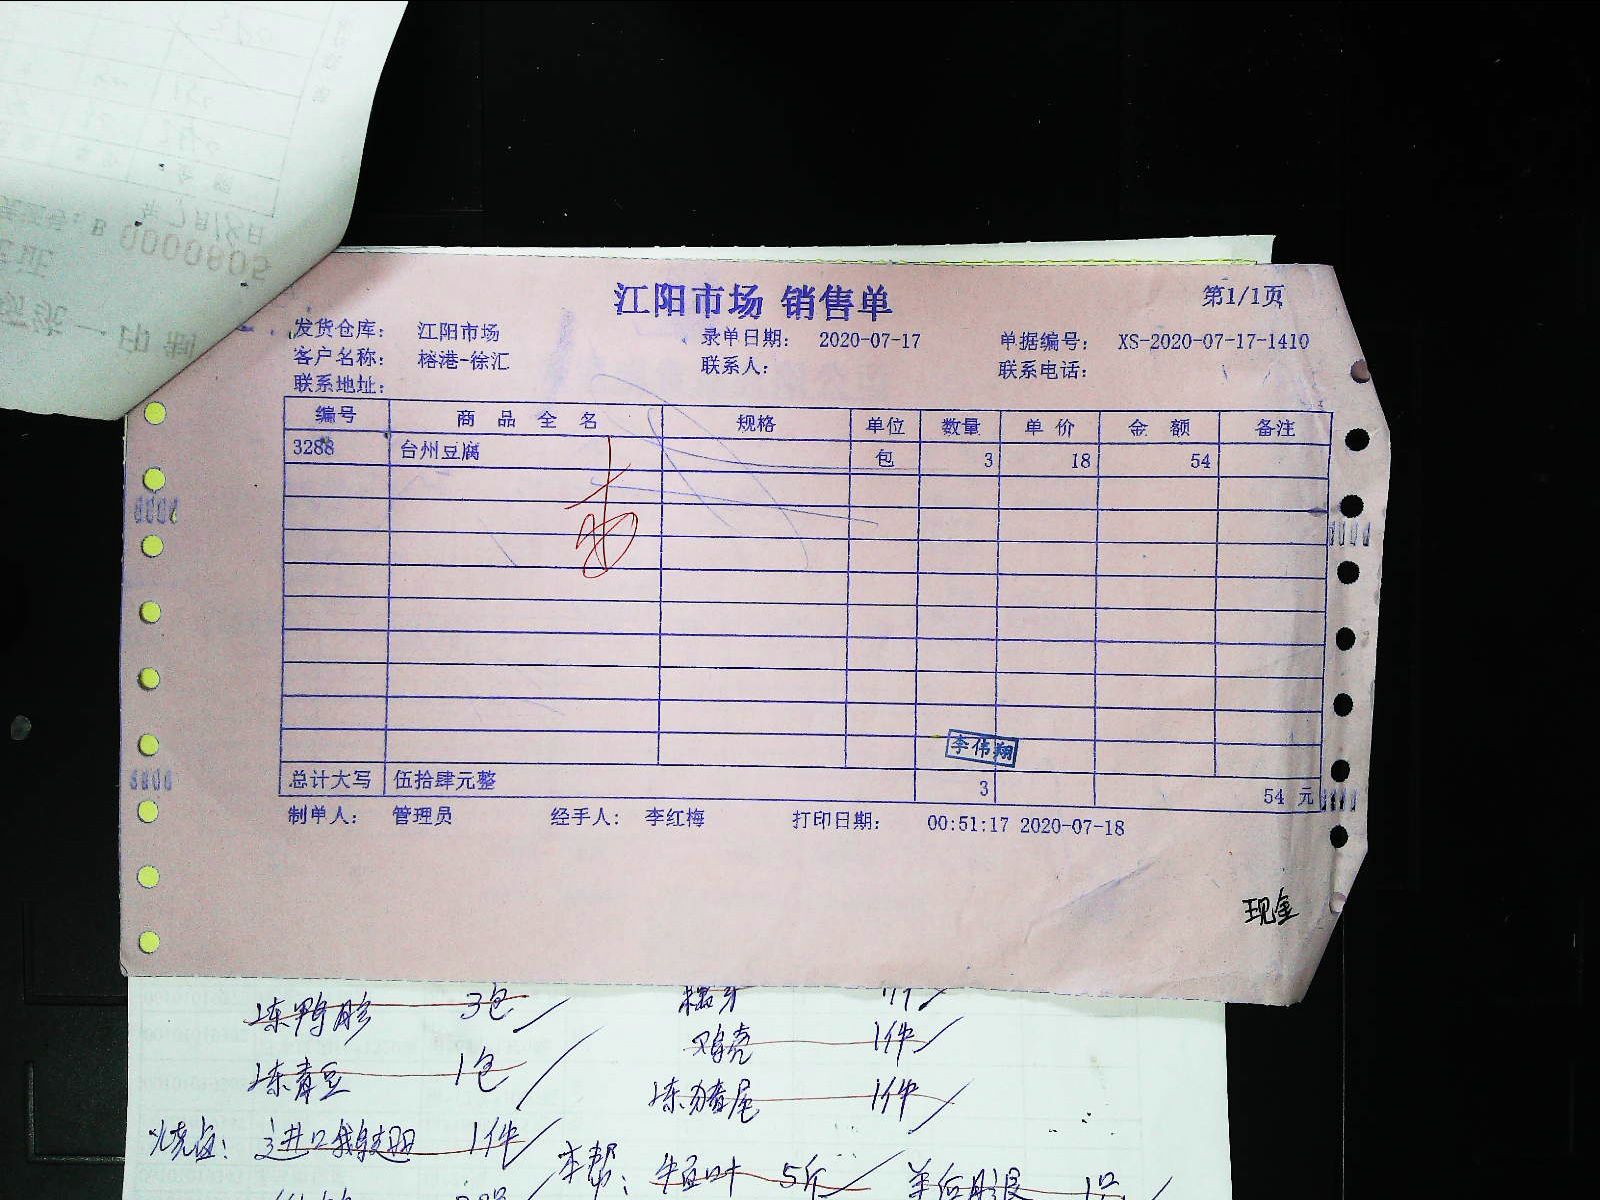 江阳市场 销售单
第1/1页
发货仓库： 江阳市场 录单日期： 2020-07-17 单据编号： XS-2020-07-17-1410
客户名称： 榕港-徐汇 联系人： 联系电话：
联系地址：
编号 商品全名 规格 单位 数量 单价 金额 备注
3288 台州豆腐 包 3 18 54
李伟翔
总计大写 伍拾肆元整 3 54 元
制单人： 管理员 经手人： 李红梅 打印日期： 00:51:17 2020-07-18
现金
冻鸭胗 3包
1件
冻青豆 1包
冻猪尾 1件
进口鹅翅 1件
本帮： 5斤
0000805